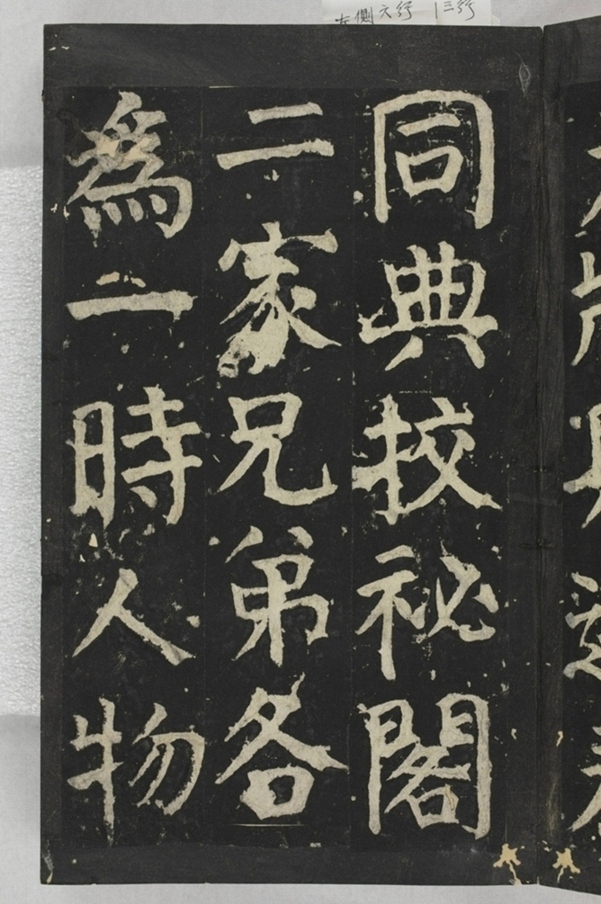 同典校祕閣
二家兄弟各
為一時人物
左側六行